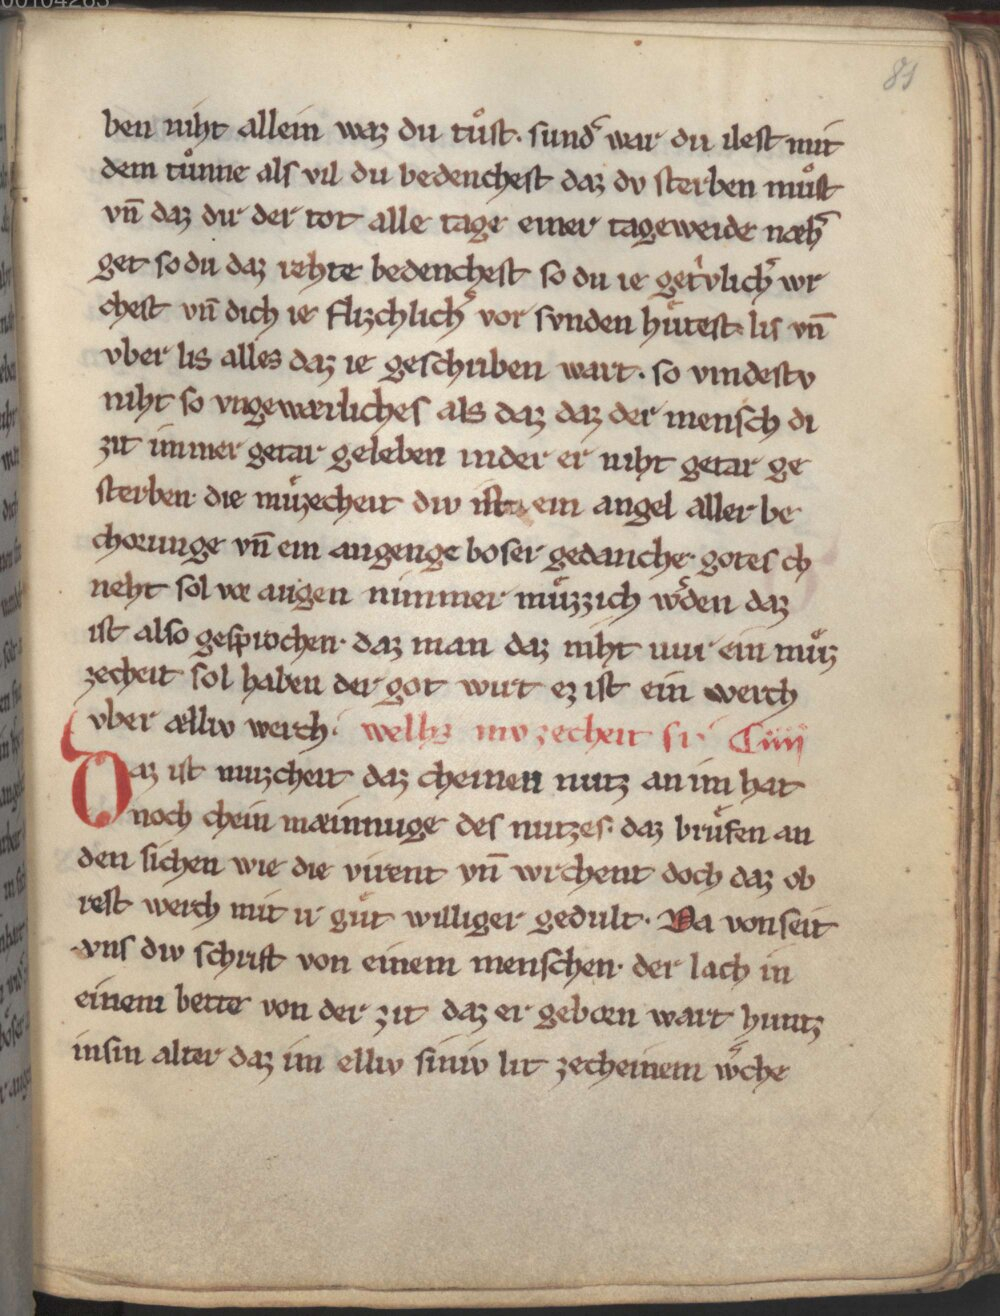 81
ben niht allein waz du tuͦst· sund͛ war du ilest mit
dem tuͦnne als vil du bedenchest daz dv sterben muͦst
vn̄ daz dir der tot alle tage einer tageweide næh͛
get so du daz rehte bedenchest so du ie getrv̍lich͛ wr
chest vn̄ dich ie flizchlich͛ vor svnden huͤtest· lis vn̄
vber lis alles daz ie geschriben wart· so vindestv
niht so vngewærliches als daz daz der mensch di
zit immer getar geleben in der er niht getar ge
sterben· die muͤzecheit div ist ein angel aller be
chorunge vn̄ ein angenge boser gedanche· gotes ch
neht sol vor augen nimmer muͤzzich w͛den daz
ist also gesprochen· daz man daz niht uur ein muͤz
zecheit sol haben der got wirt ez ist ein werch
vber ælliv werch· welhz mvzecheit si· Ciiij
Daz ist muzcheit daz cheinen nutz an im hat
noch chein mæinnuge des nutzes· daz bruͤfen an
den sichen wie die virent vn̄ wrchent doch daz ob
rest werch mit ir guͦt williger gedult· Da von seit
vns div schrift von einem menschen· der lach in
einem bette von der zit daz er geborn wart huntz
in sin alter daz im elliv siniv lit zecheinem w͛che